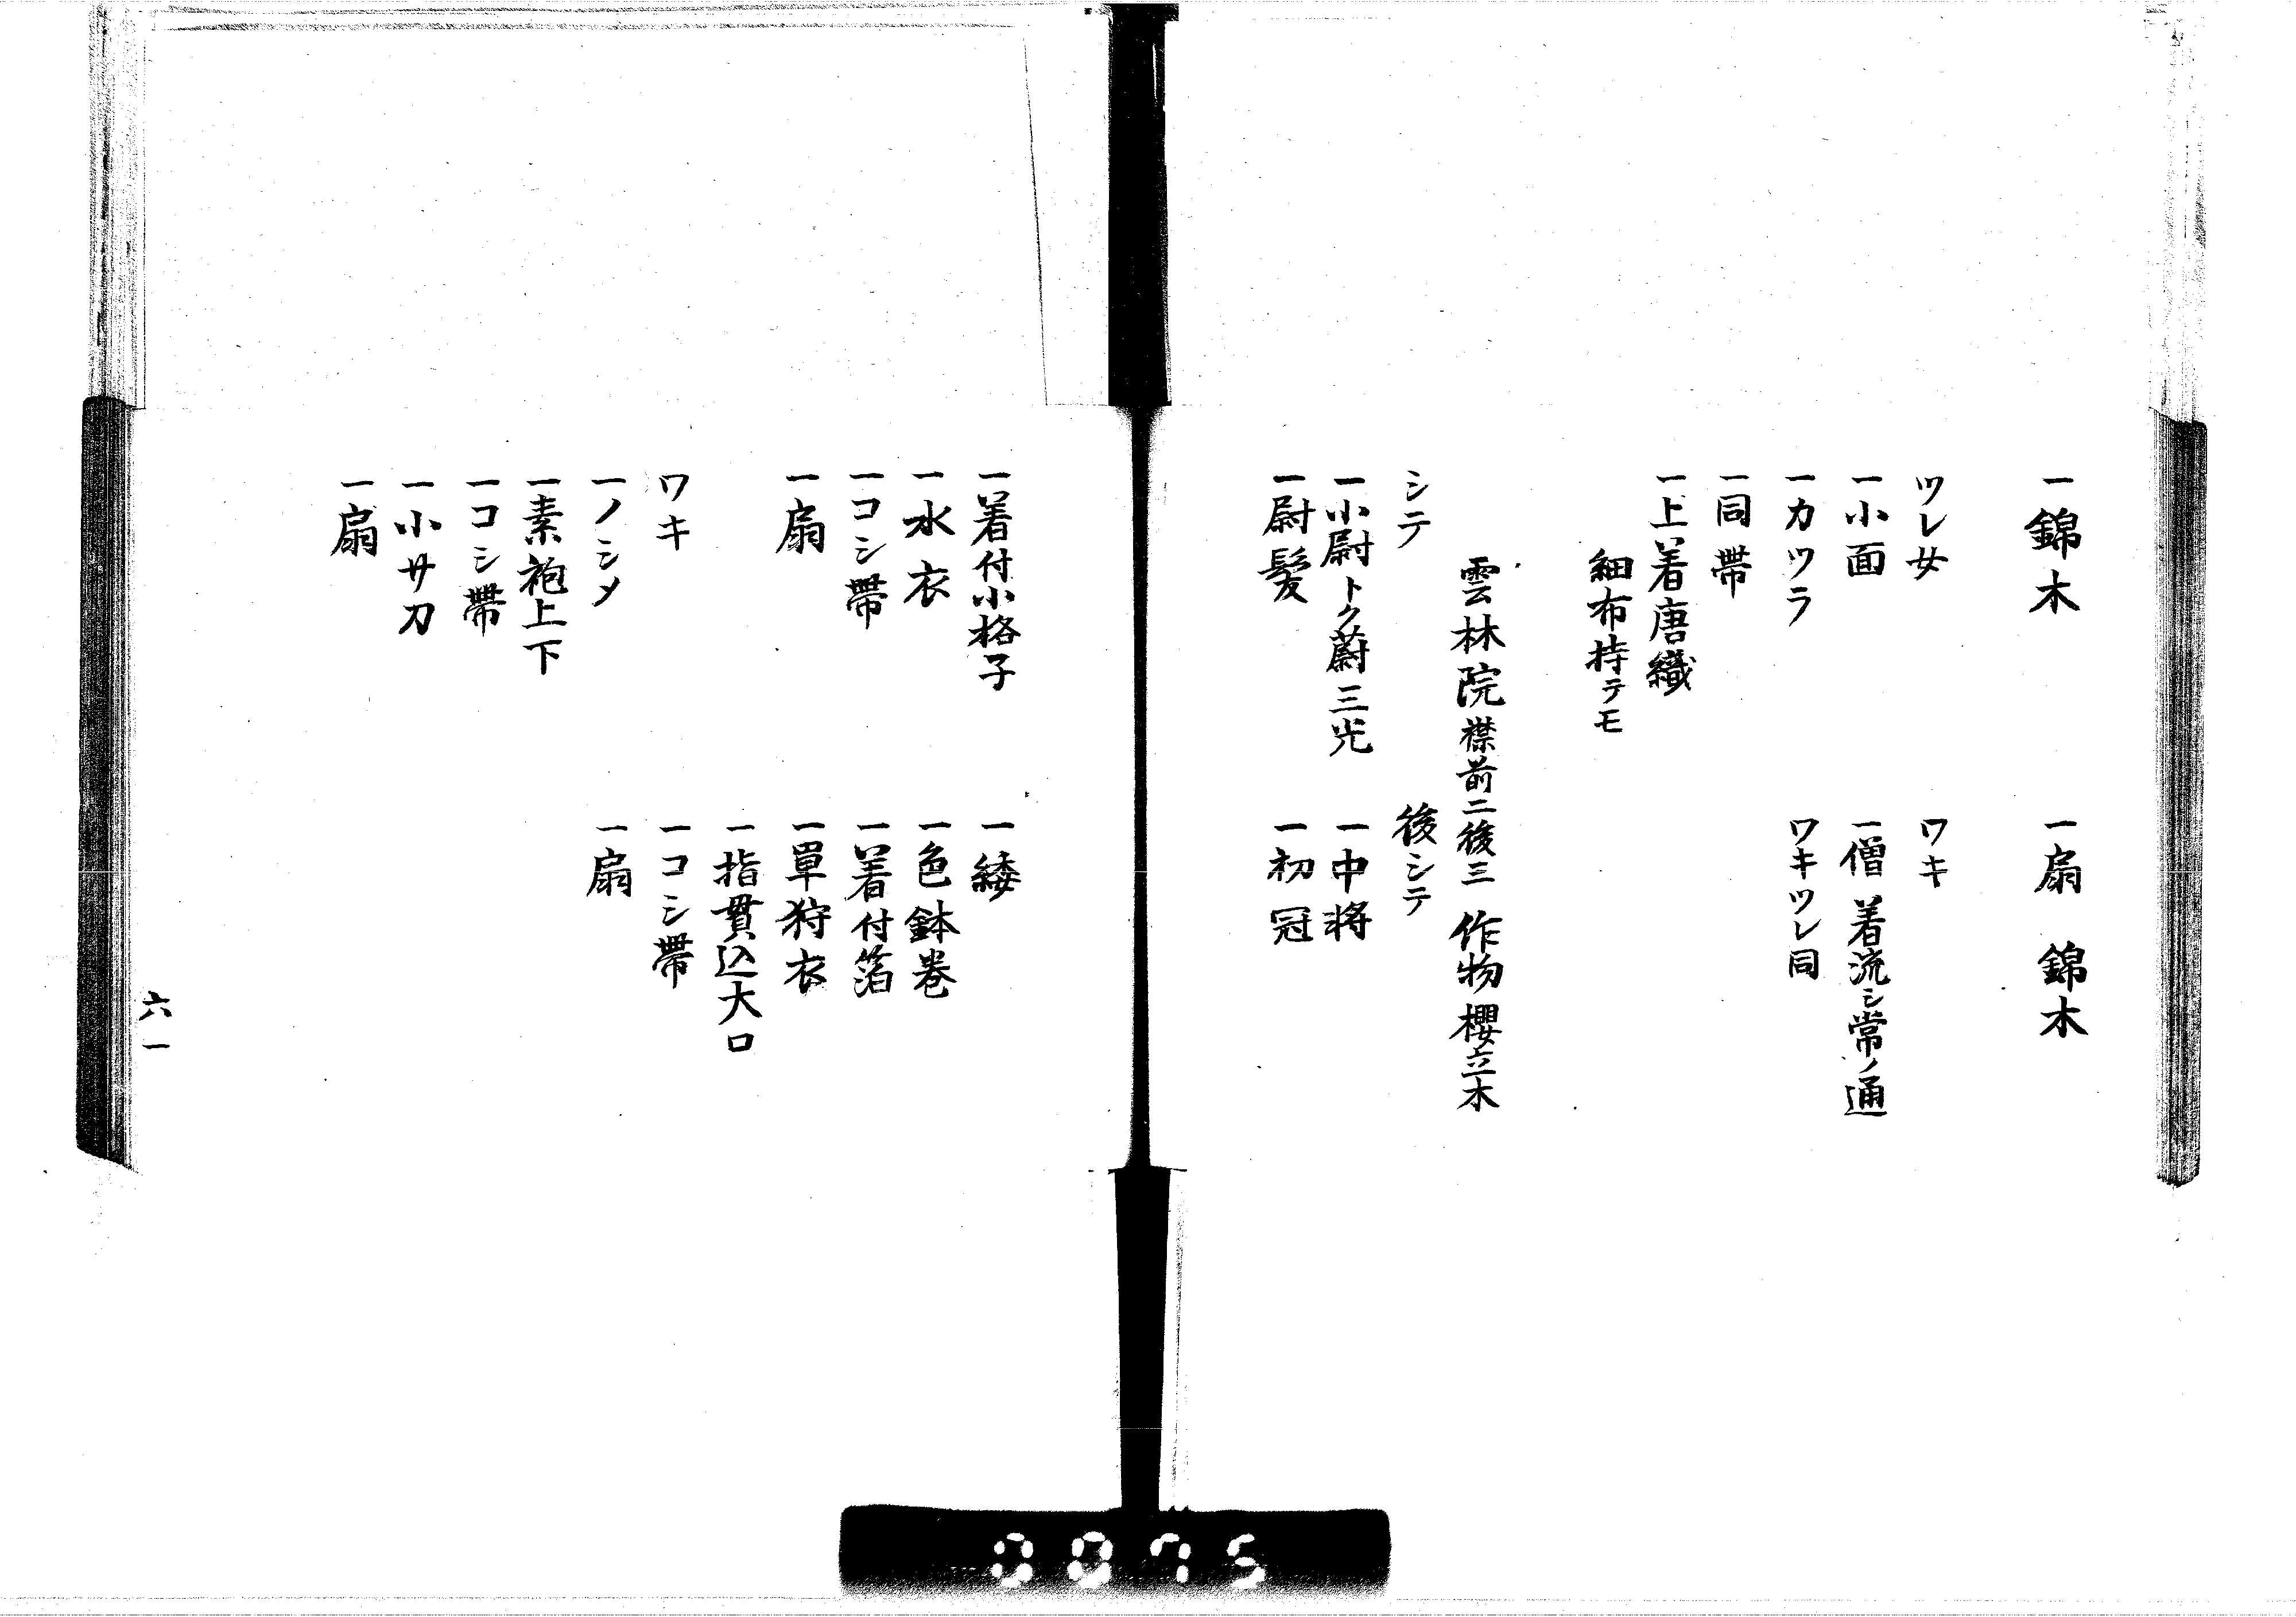 一錦木
一扇　錦木
ツレ女
ワキ
一小面
一僧　着流シ常ノ通
一カツラ
ワキツレ同
一同帯
一上着唐織
細布持テモ
雲林院　襟前二後三　作物櫻立木
シテ
後シテ
一小尉トク蔚三光
一中将
一尉髪
一初冠
一着付小格子
一緌
一水衣
一色鉢巻
一コシ帯
一着付箔
一扇
一單狩衣
一指貫込大口
ワキ
一コシ帯
一ノシメ
一扇
一素袍上下
一コシ帯
一小サ刀
一扇
六一